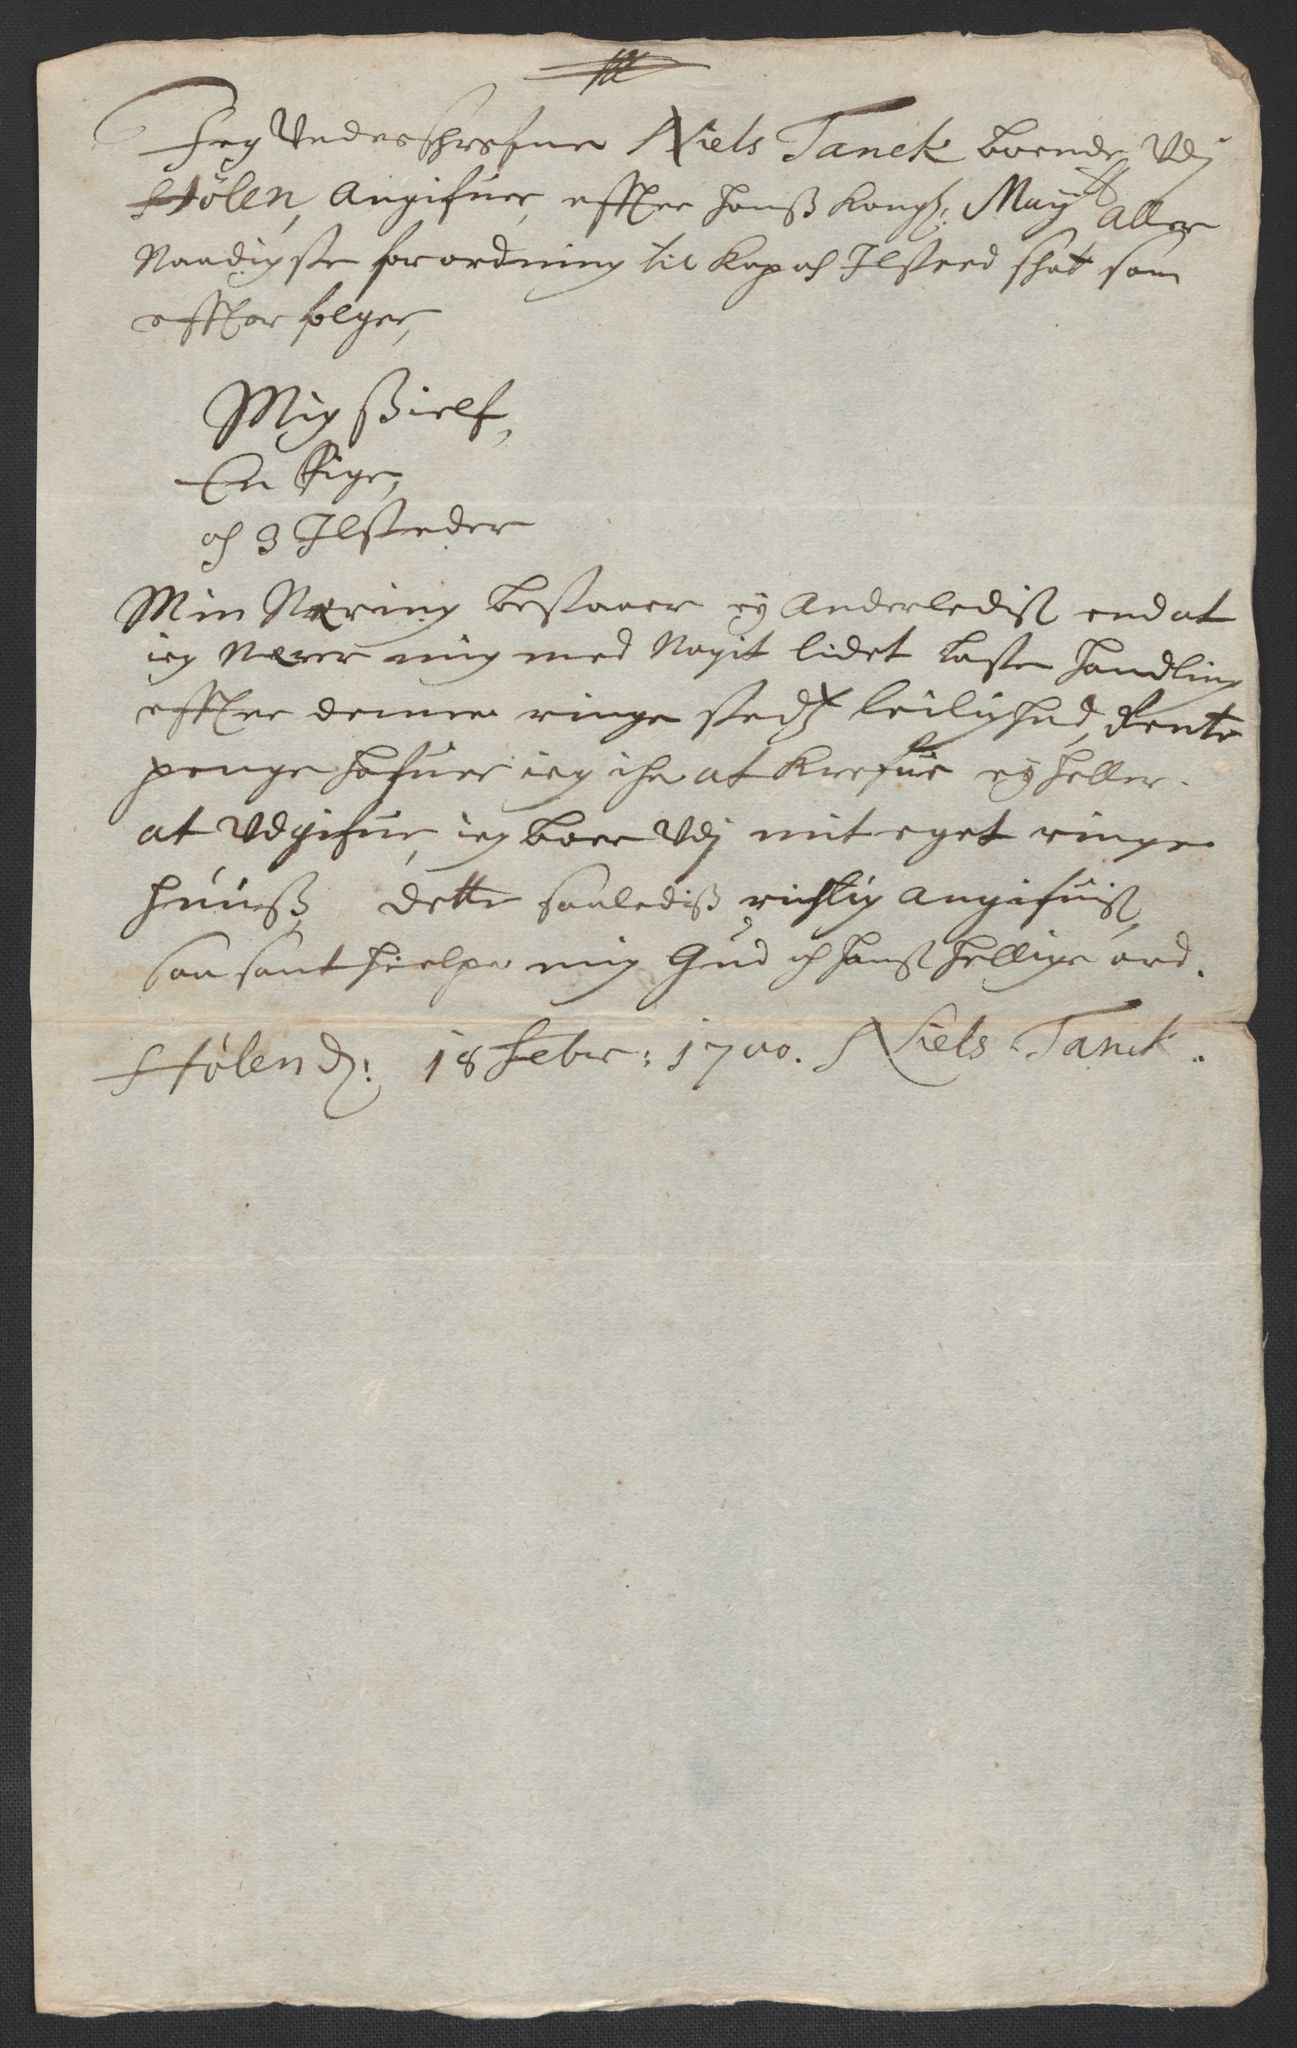 Jeg Underschrefne Niels Tanck boende Udj
Hölen, Angifuer, effter hanß Kongl: Mayts Aller
Naadigste forordning til Kop och Ilsteed skat som
effter følger,
Mig ßielf,
En Pige,
och 3 Ilsteder
Min Næring bestaaer ej Anderledist end at
ieg Nærer mig med Nogit lidet last handling
effter denne ringe stedz leilighed, Rente
penge hafuer ieg iche at Krefue ej heller
at Udgifue, ieg boer Udj mit eget ringe
huuß, dette saalediß richtig angifuist,
saa sant hielpe mig Gud och hanß hellige ord.
Hölen d: 18 Febr: 1700. Niels Tanck.